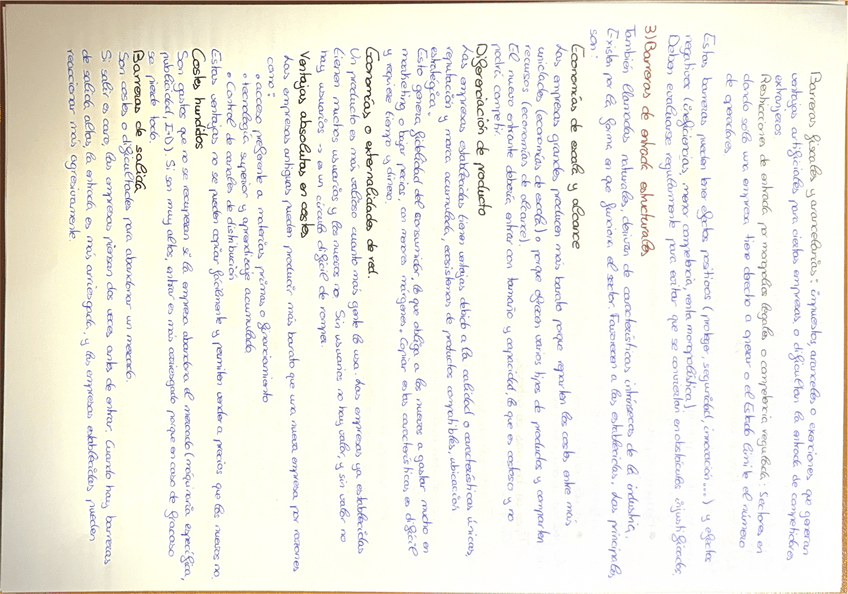 Barreras fiscales y arancelarias: impuestos, aranceles o exenciones que generan
ventajas artificiales para ciertas empresas o dificultan la entrada de competidores
extranjeros
Restricciones de entrada por monopolios legales o competencia regulada: Sectores en
donde solo una empresa tiene derecho a operar o el Estado limita el número
de operadores.
Estas barreras pueden tener efectos positivos (proteger, seguridad, innovación...) y efectos
negativos (ineficiencias, menor competencia, renta monopolística)
Deben evaluarse regularmente para evitar que se conviertan en obstáculos injustificados
3) Barreras de entrada estructurales
También llamadas naturales, derivan de características intrínsecas de la industria.
Existen por la forma en que funciona el sector. Favorecen a las establecidas. Las principales
son:
Economías de escala y alcance
Las empresas grandes producen más barato porque reparten los costes entre más
unidades (economías de escala) o porque ofrecen varios tipos de productos y comparten
recursos (economías de alcance).
El nuevo entrante debería entrar con tamaño y capacidad, lo que es costoso y no
podría competir.
Diferenciación de producto
Las empresas establecidas tienen ventajas debido a la calidad o características únicas,
reputación y marca acumulada, ecosistemas de productos compatibles, ubicación
estratégica.
Esto genera fidelidad del consumidor, lo que obliga a los nuevos a gastar mucho en
marketing o bajar precios, con menores márgenes. Copiar estas características es difícil
y requiere tiempo y dinero.
Economías o externalidades de red.
Un producto es más valioso cuanto más gente lo usa. Las empresas ya establecidas
tienen muchos usuarios y las nuevas no. Sin usuarios no hay valor, y sin valor no
hay usuarios -> es un círculo difícil de romper.
Ventajas absolutas en costes
Las empresas antiguas pueden producir más barato que una nueva empresa por razones
como:
• acceso preferente a materias primas o financiamiento
• tecnología superior y aprendizaje acumulado
• Control de canales de distribución
Estas ventajas no se pueden copiar fácilmente y permiten vender a precios que los nuevos no.
Costes hundidos
Son gastos que no se recuperan si la empresa abandona el mercado (maquinaria específica,
publicidad, I+D). Si son muy altos, entrar es más arriesgado porque en caso de fracaso
se pierde todo
Barreras de salida
Son costes o dificultades para abandonar un mercado.
Si salir es caro, las empresas piensan dos veces antes de entrar. Cuando hay barreras
de salida altas, la entrada es más arriesgada, y las empresas establecidas pueden
reaccionar más agresivamente.